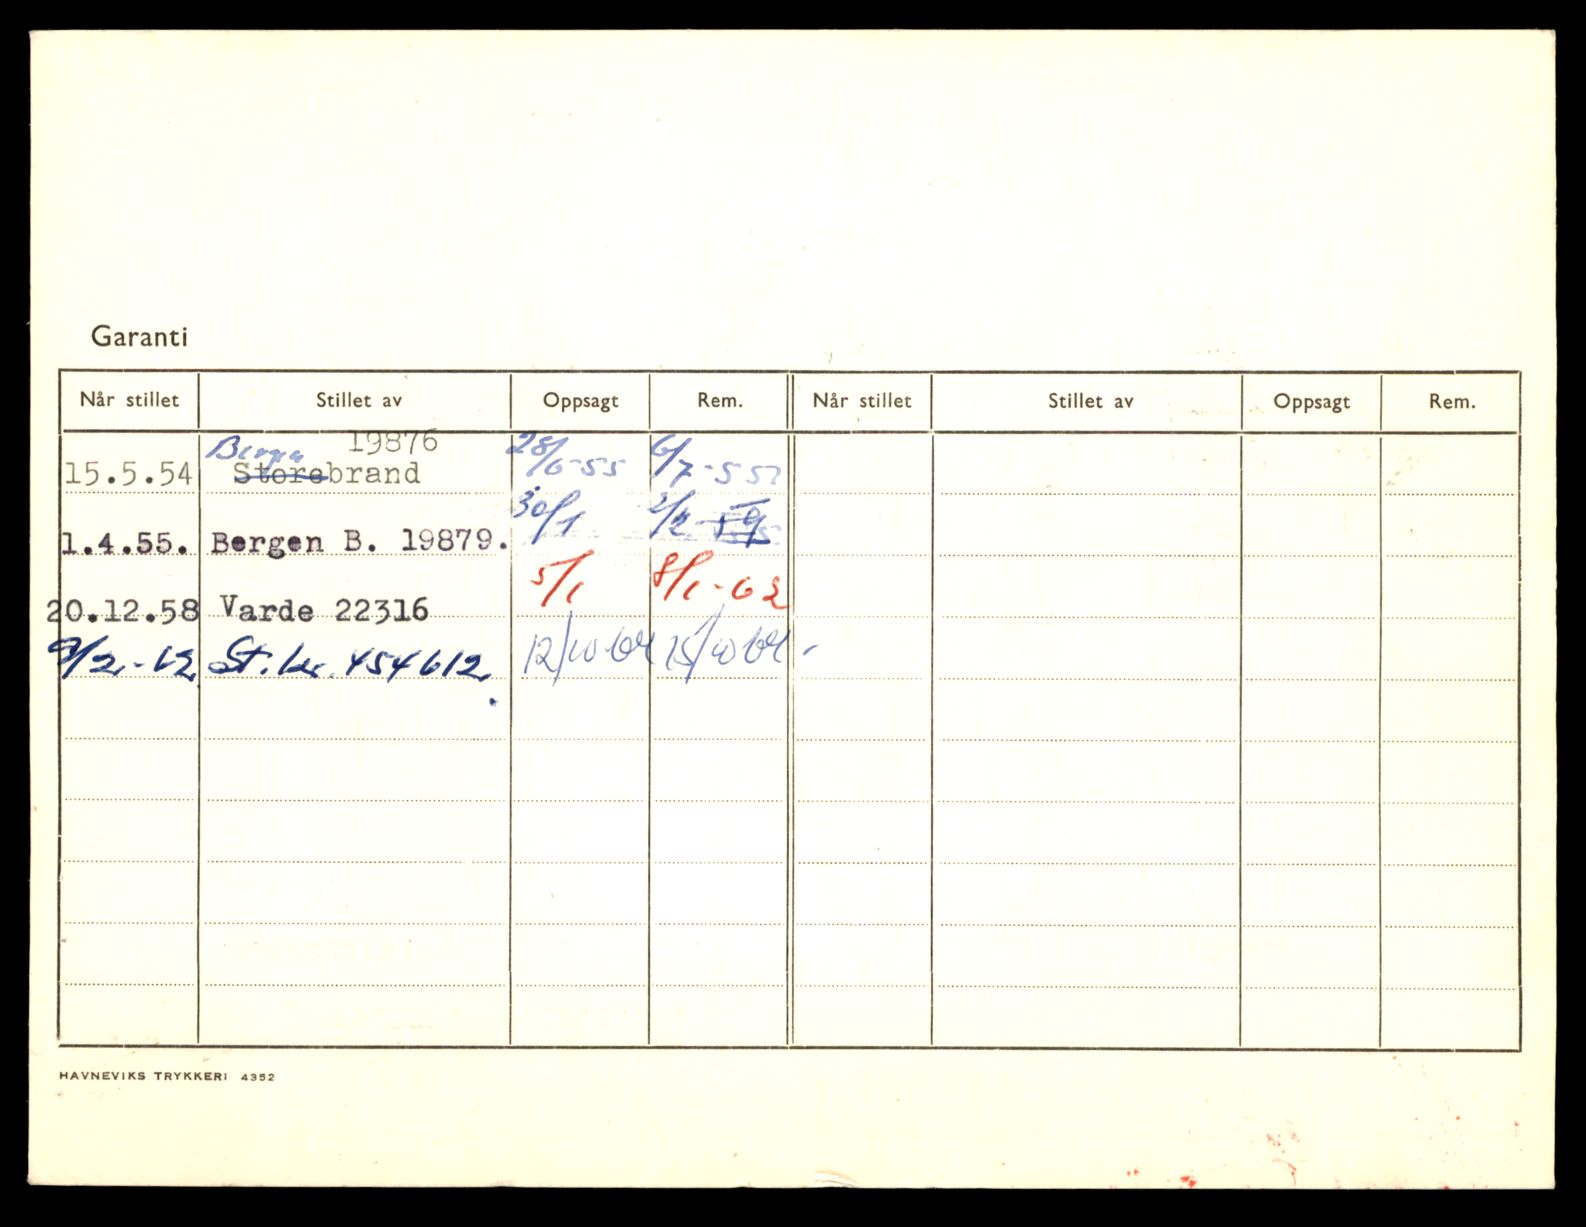 Garanti
Når stillet Stillet av Oppsagt Rem. Når stillet Stillet av Oppsagt Rem.
Bergen 19876 28/6-55 6/7-55
15.5.54 Storebrand
30/1 2/2-59
1.4.55. Bergen B. 19879.
5/1 8/1-62
20.12.58 Varde 22316
9/2-62 St.kr. 454612 12/10 64 15/10 64
HAVNEVIKS TRYKKERI 4352